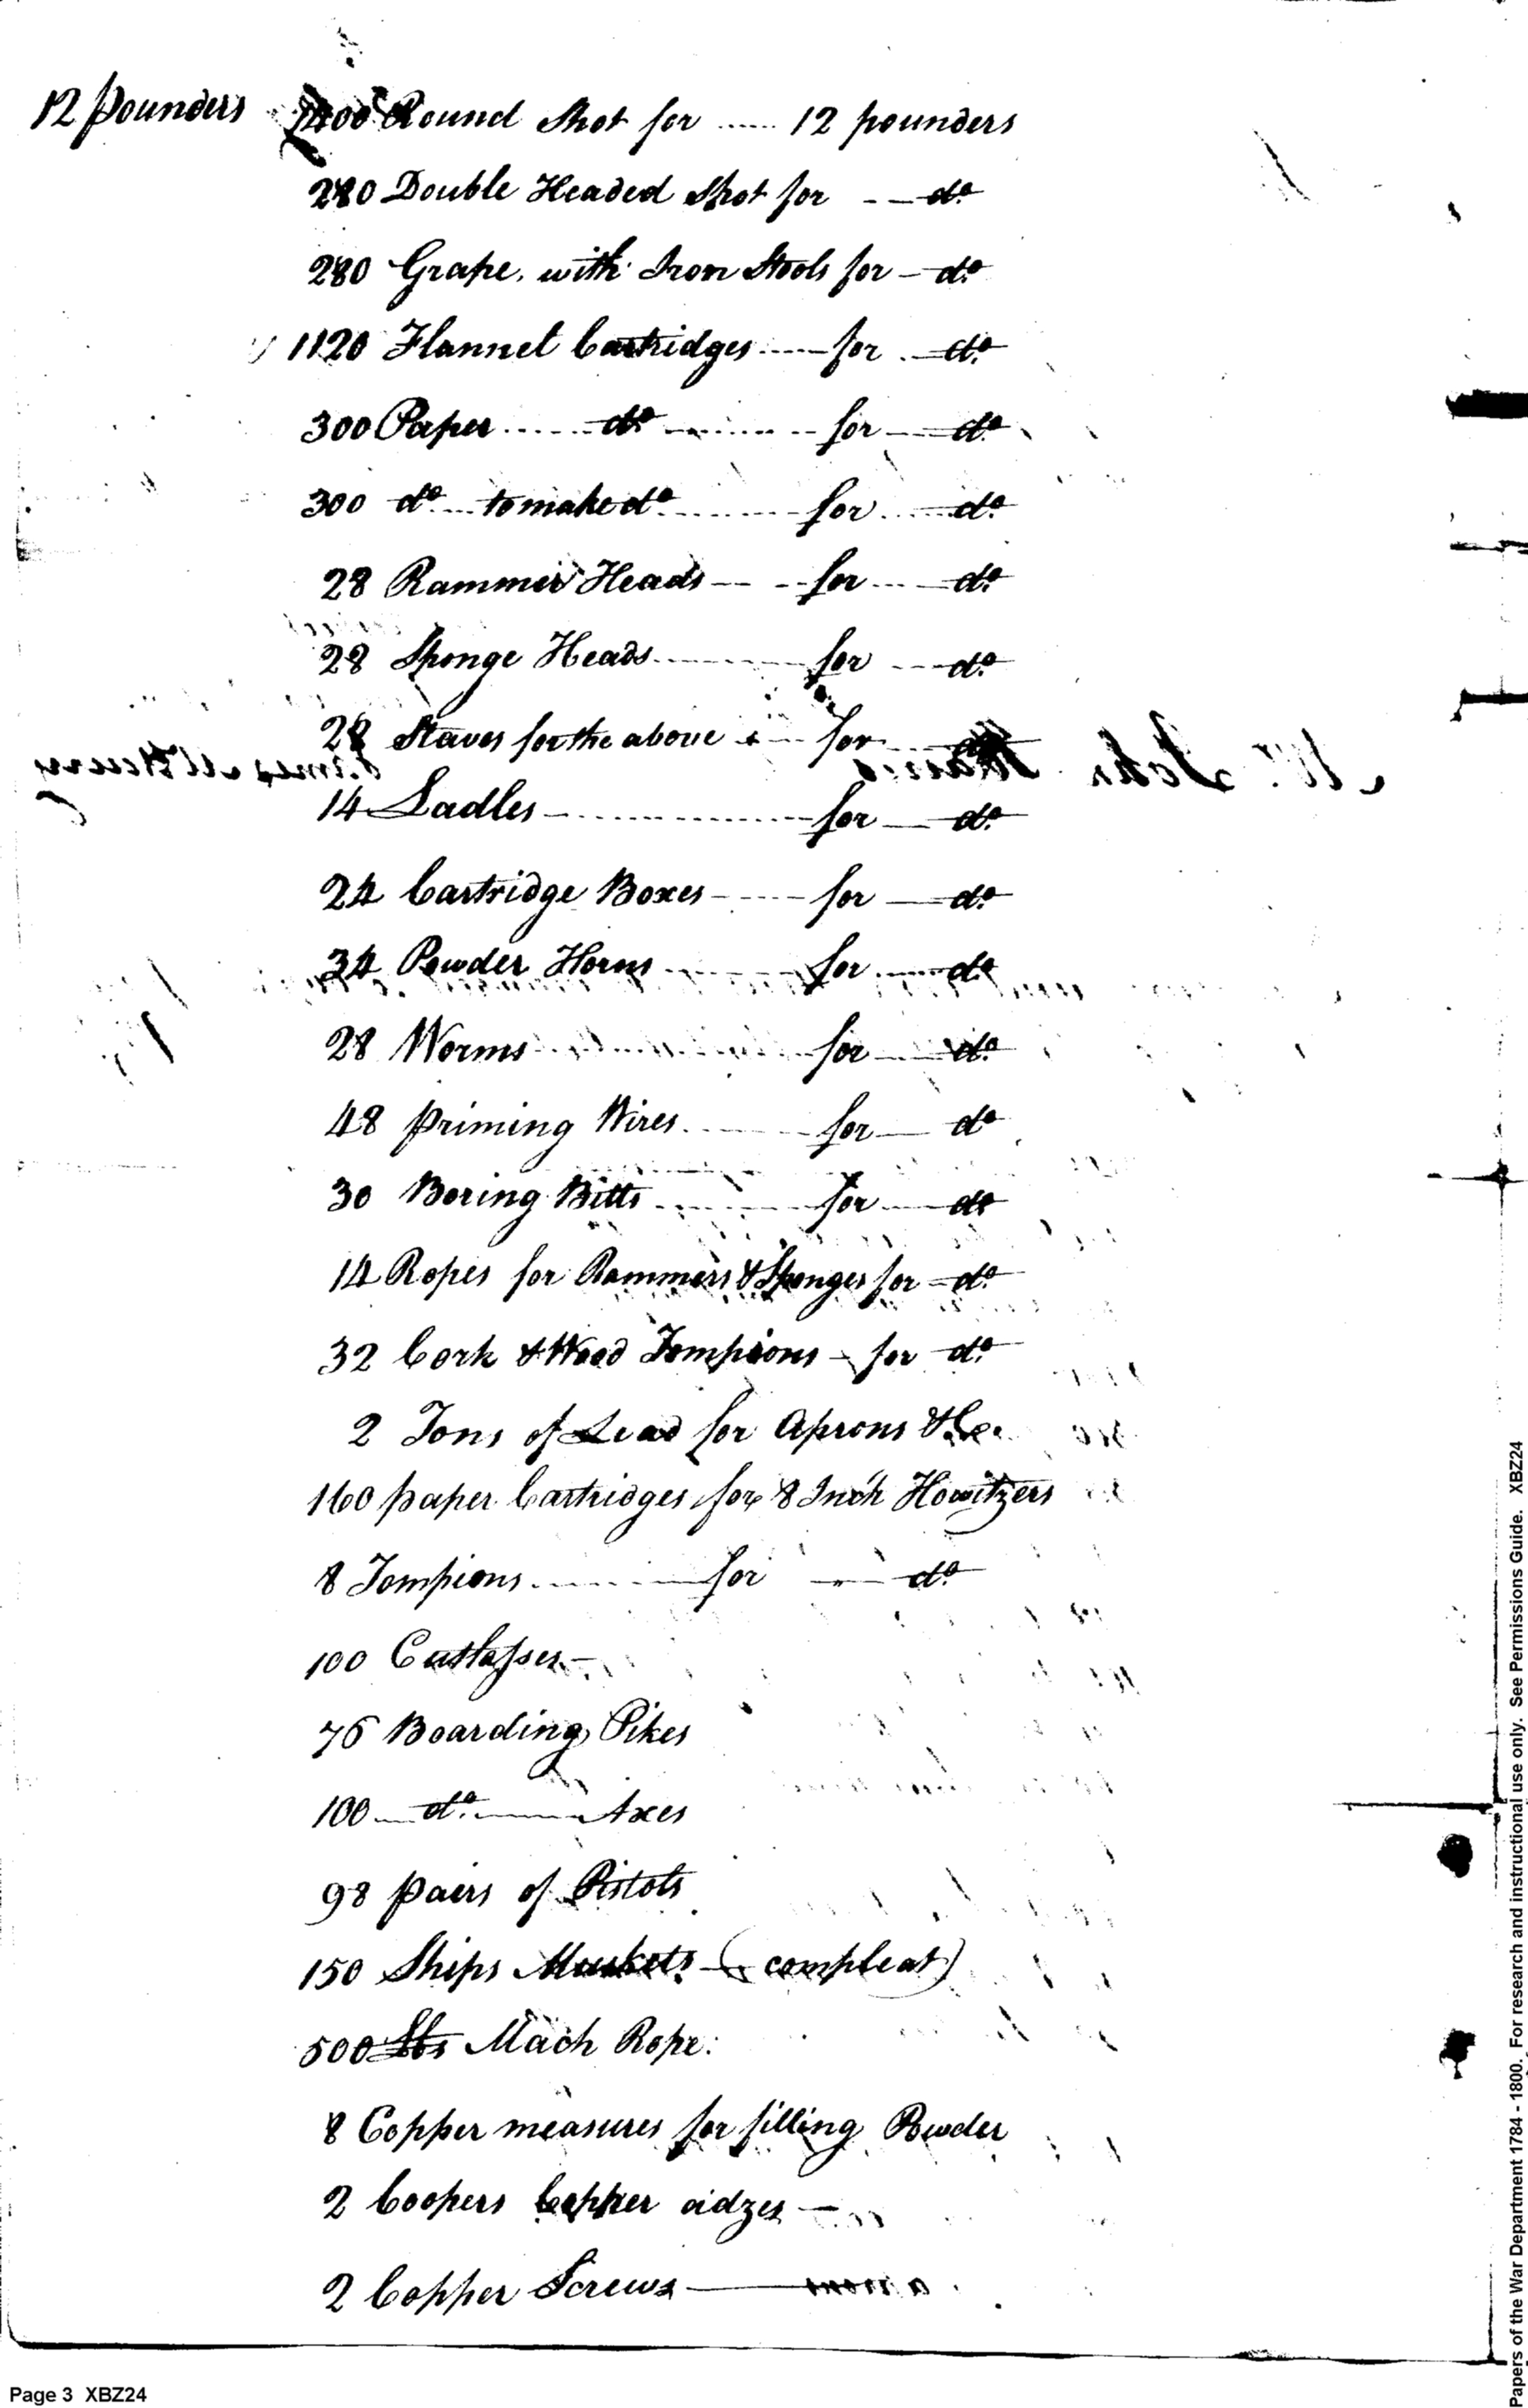 12 pounders 1400 Round Shot for ...... 12 pounders
280 Double Headed Shot for -- do.
280 Grape, with Iron Stools for - do.
1120 Flannel Cartridges ..... for . do.
300 Paper ...... do. ........ for - do
300 do. .... to make do. ........ for ..... do.
28 Rammer Heads -- -- for ... do.
28 Sponge Heads ........ for --- do.
28 Staves for the above ... for ...
14 Ladles - ............... for - do.
24 Cartridge Boxes - ---- for - do.
34 Powder Horns ........ for ..... do.
28 Worms ........ for ..... do.
48 priming Wires. ....... for - do
30 Boring Bitts ........ for ..... do
14 Ropes for Rammers & Sponges for - do.
32 Cork & Wood Tompions - for do.
2 Tons of Lead for Aprons &c.
160 paper Cartridges for 8 Inch Howitzers
8 Tompions ........ for -- do.
100 Cutlasses -
76 Boarding Pikes
100 -- do. ---- Axes
98 pairs of Pistols
150 Ships Muskets - (compleat)
500 Lbs Mach Rope.
8 Copper measures for filling Powder
2 Coopers Copper adzes -
2 Copper Screws -
Page 3 XBZ24
Papers of the War Department 1784 - 1800. For research and instructional use only. See Permissions Guide. XBZ24